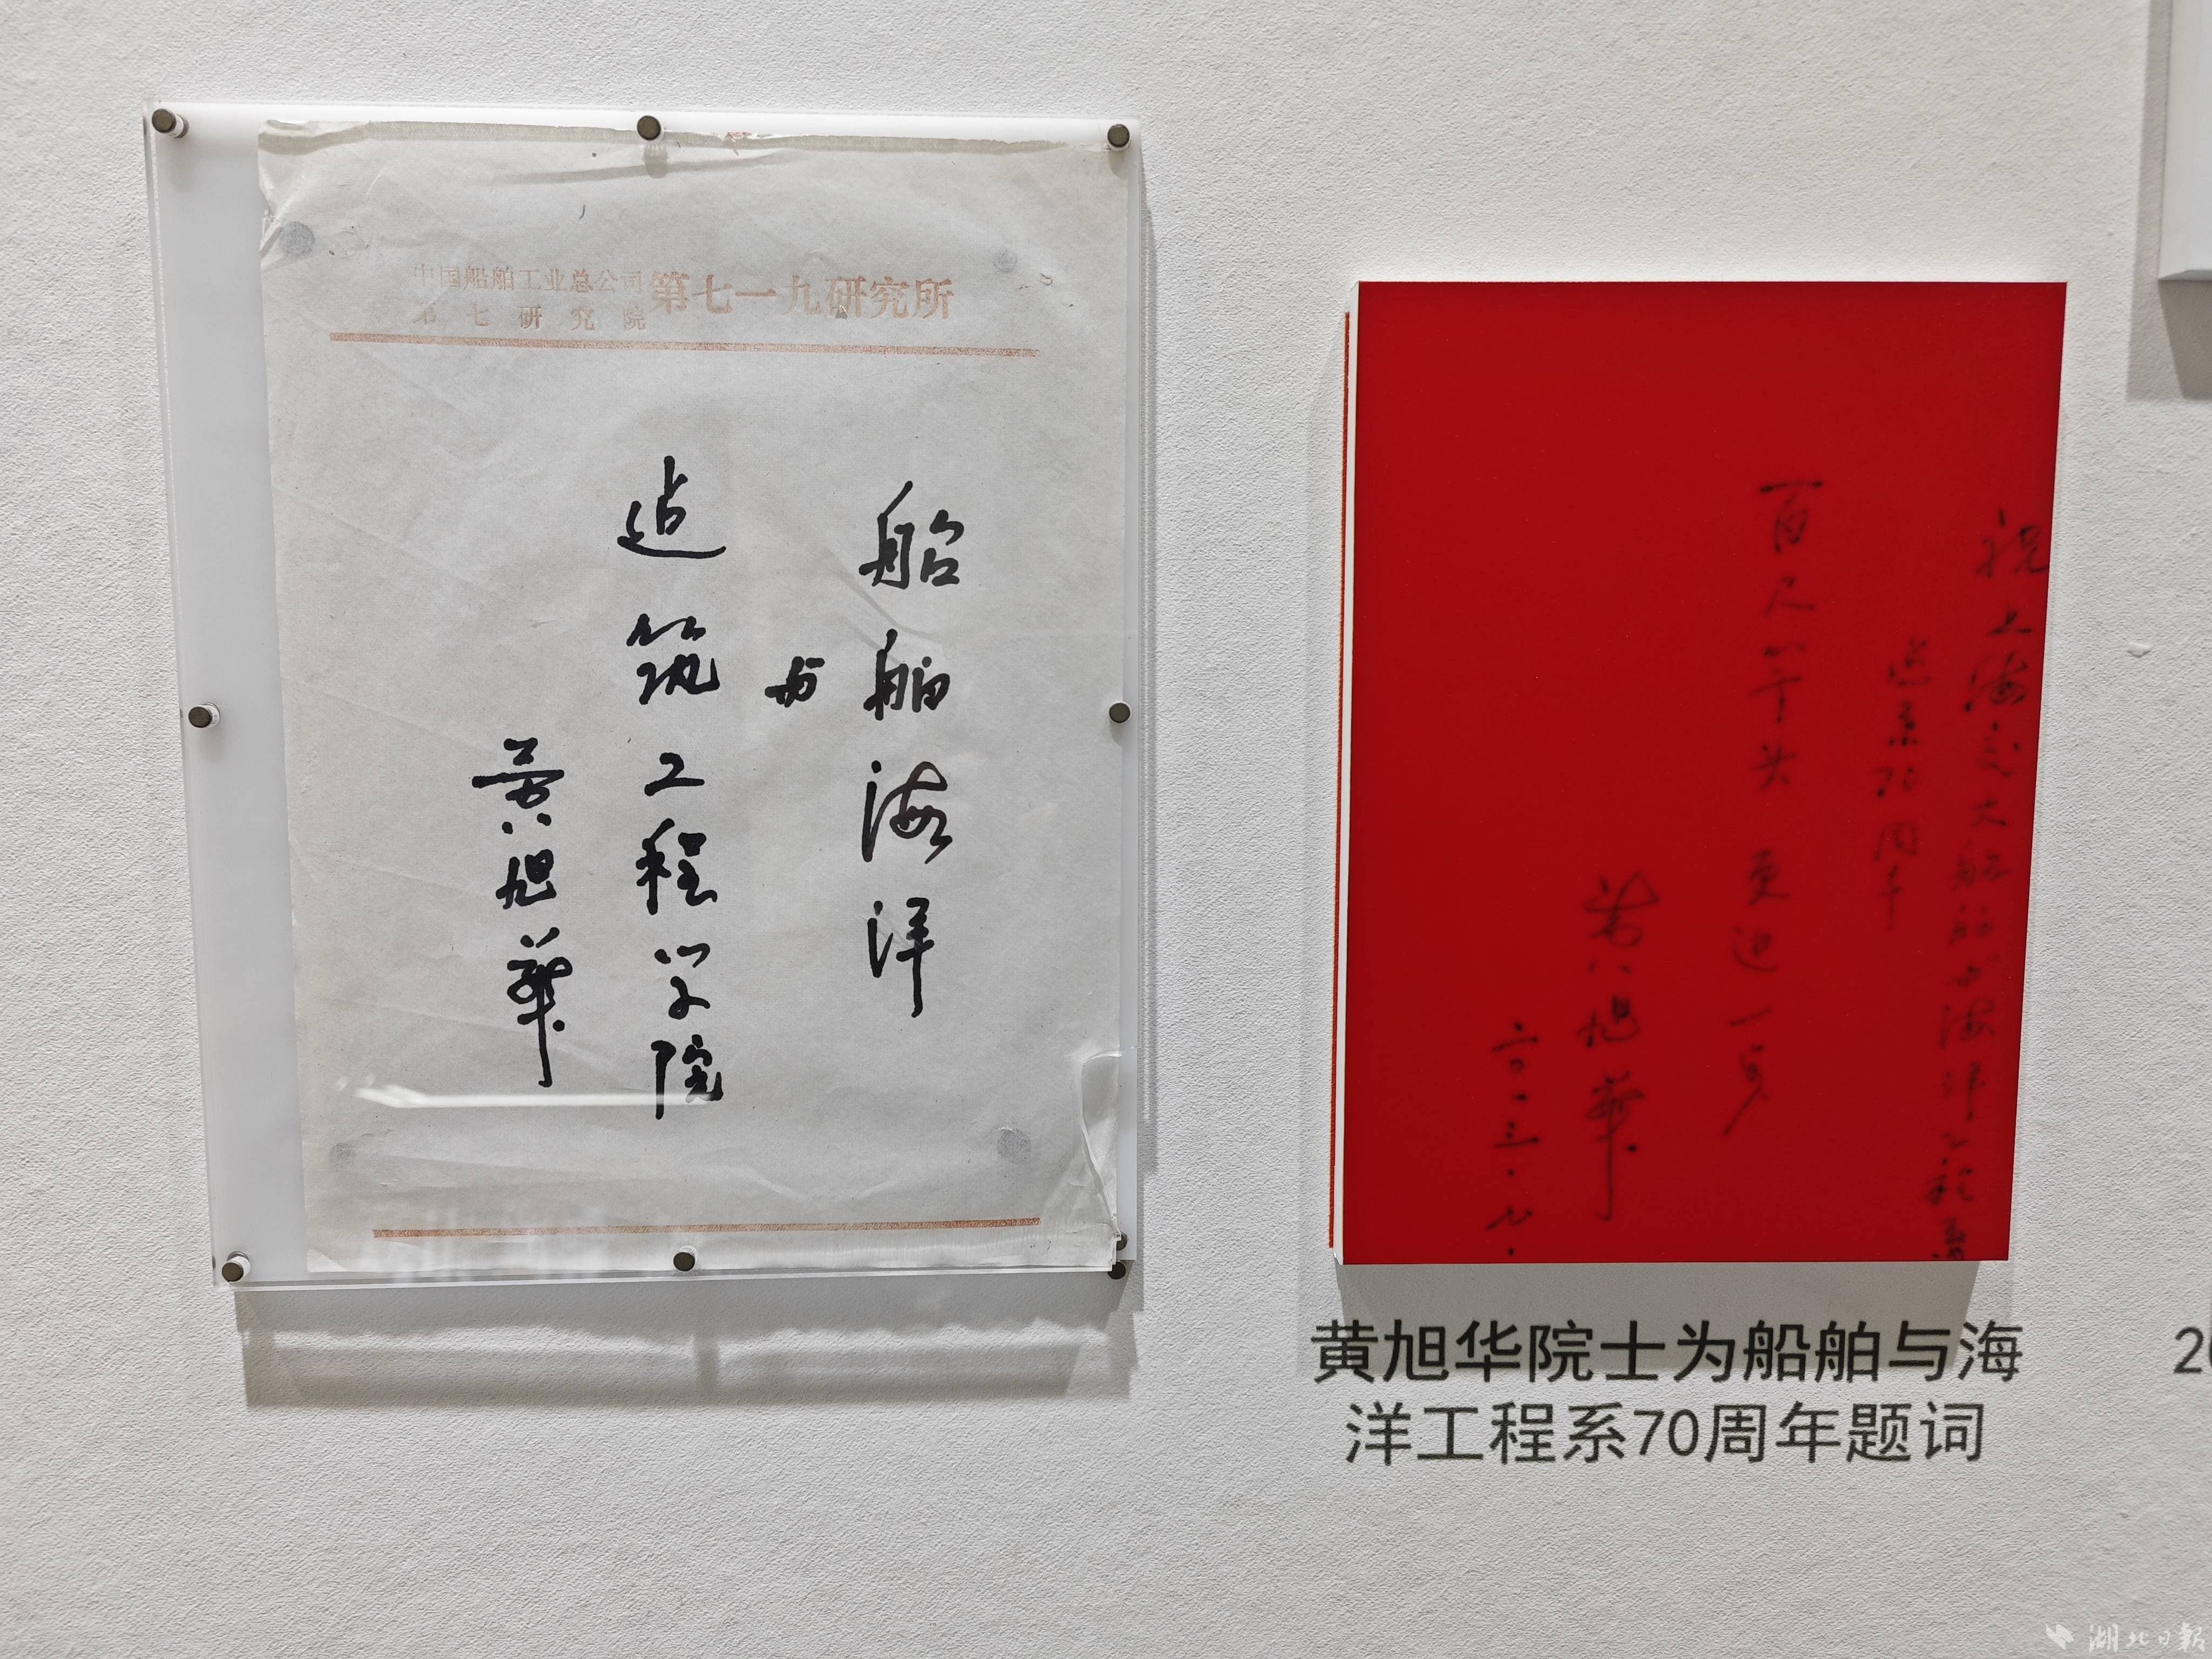 中国船舶工业总公司
第七研究院
第七一九研究所
船舶海洋
与
造筑工程学院
黄旭华
祝上海交大船舶与海洋工程系
造系70周年
百尺竿头更进一步
黄旭华
二〇.三.九.
黄旭华院士为船舶与海
洋工程系70周年题词
20
湖北日报